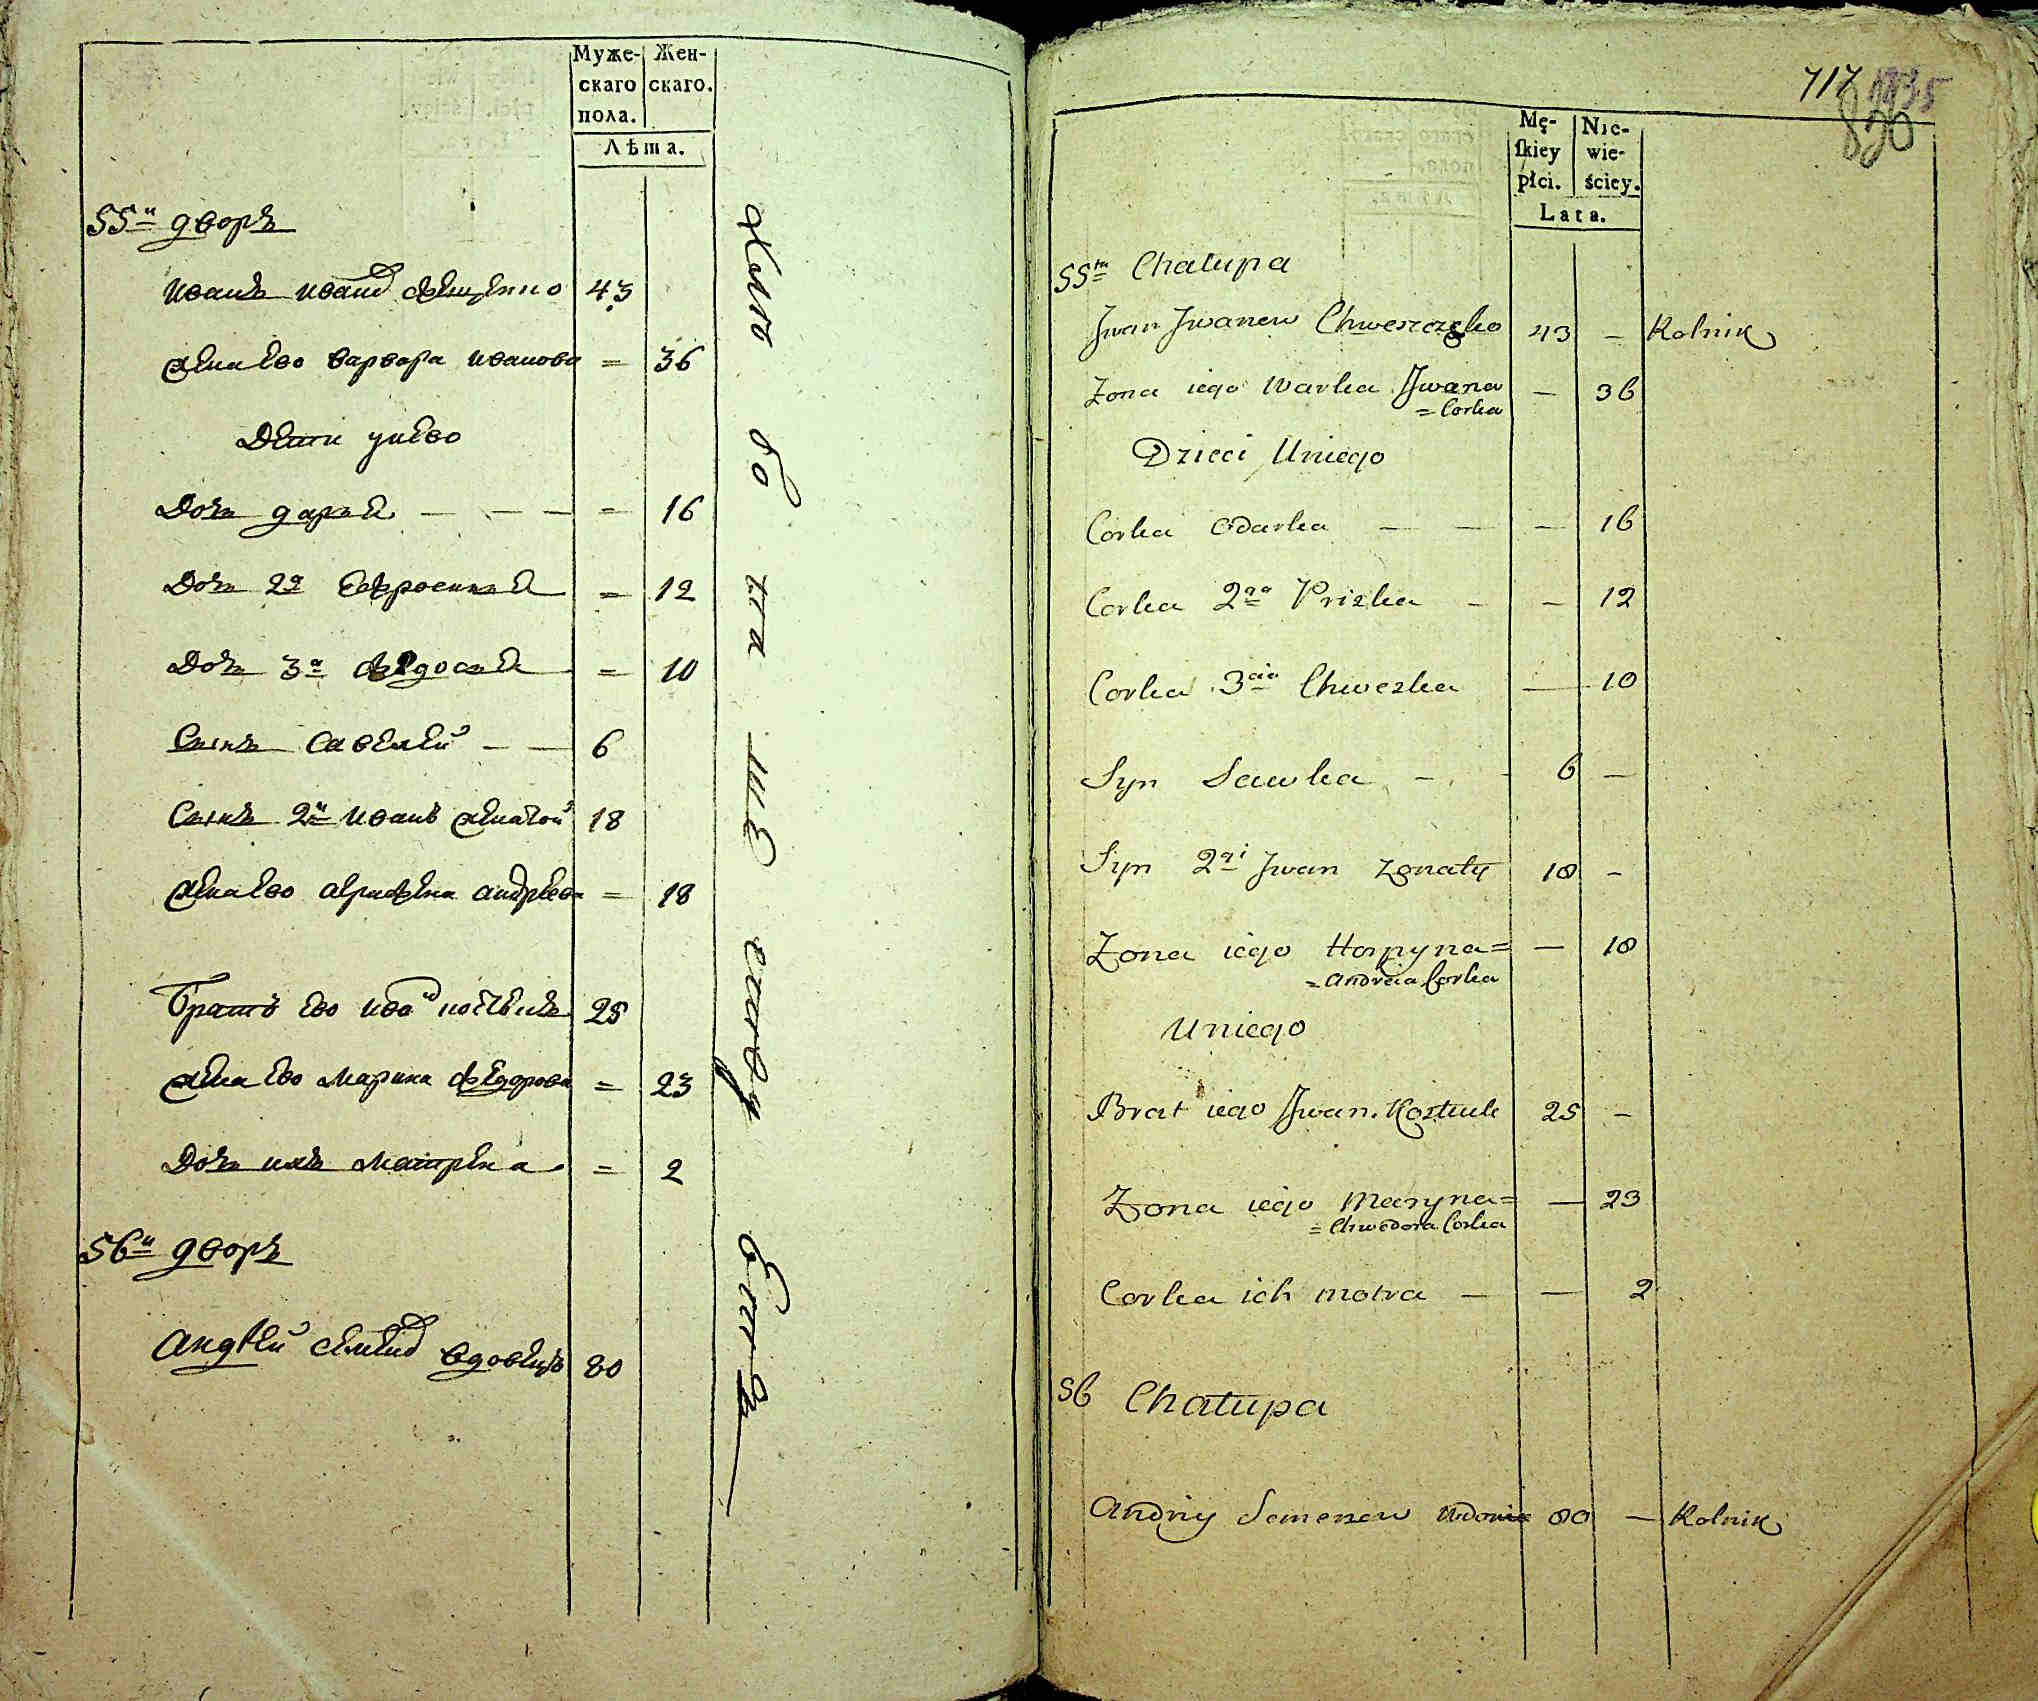 Муже- Жен-
скаго скаго.
пола.
Лѣта.
55й дворъ
Иванъ Иванов Фещенко 43
Жена Ево Варвара Иванова = 36
Дети унево
Дочь Дарья — — — = 16
Дочь 2я Евфросиния = 12
Дочь 3я Федосия = 10
Сынъ Савелей — — 6
Сынъ 2й Иванъ женатой 18
Жена Ево Агрипена Андреева = 18
Братъ Ево Иван 25
Жена Ево Марина Федорова = 23
Дочь ихъ Матрена = 2
56й дворъ
Андрей Семенов вдовецъ 80
717 1735
820
Mę- Nie-
ſkiey wie-
płci. ściey.
Lata.
55ta Chałupa
Jwan Jwanew Chweszczeko 43 — Rolnik
Zona iego Warka Jwana — 36
= Corka
Dzieci Uniego
Corka Odarka — — — 16
Corka 2ga Priska — — 12
Corka 3cia Chweska — 10
Syn Sawka — 6 —
Syn 2gi Jwan Zonaty 18 —
Zona iego Horpyna = — 18
= Andreia Corka
Uniego
Brat iego Jwan. Kostiuk 25 —
Zona iego Maryna = — 23
= Chwedora Corka
Corka ich Motra — — 2
56 Chałupa
Andriy Semenew Wdowiec 80 — Rolnik